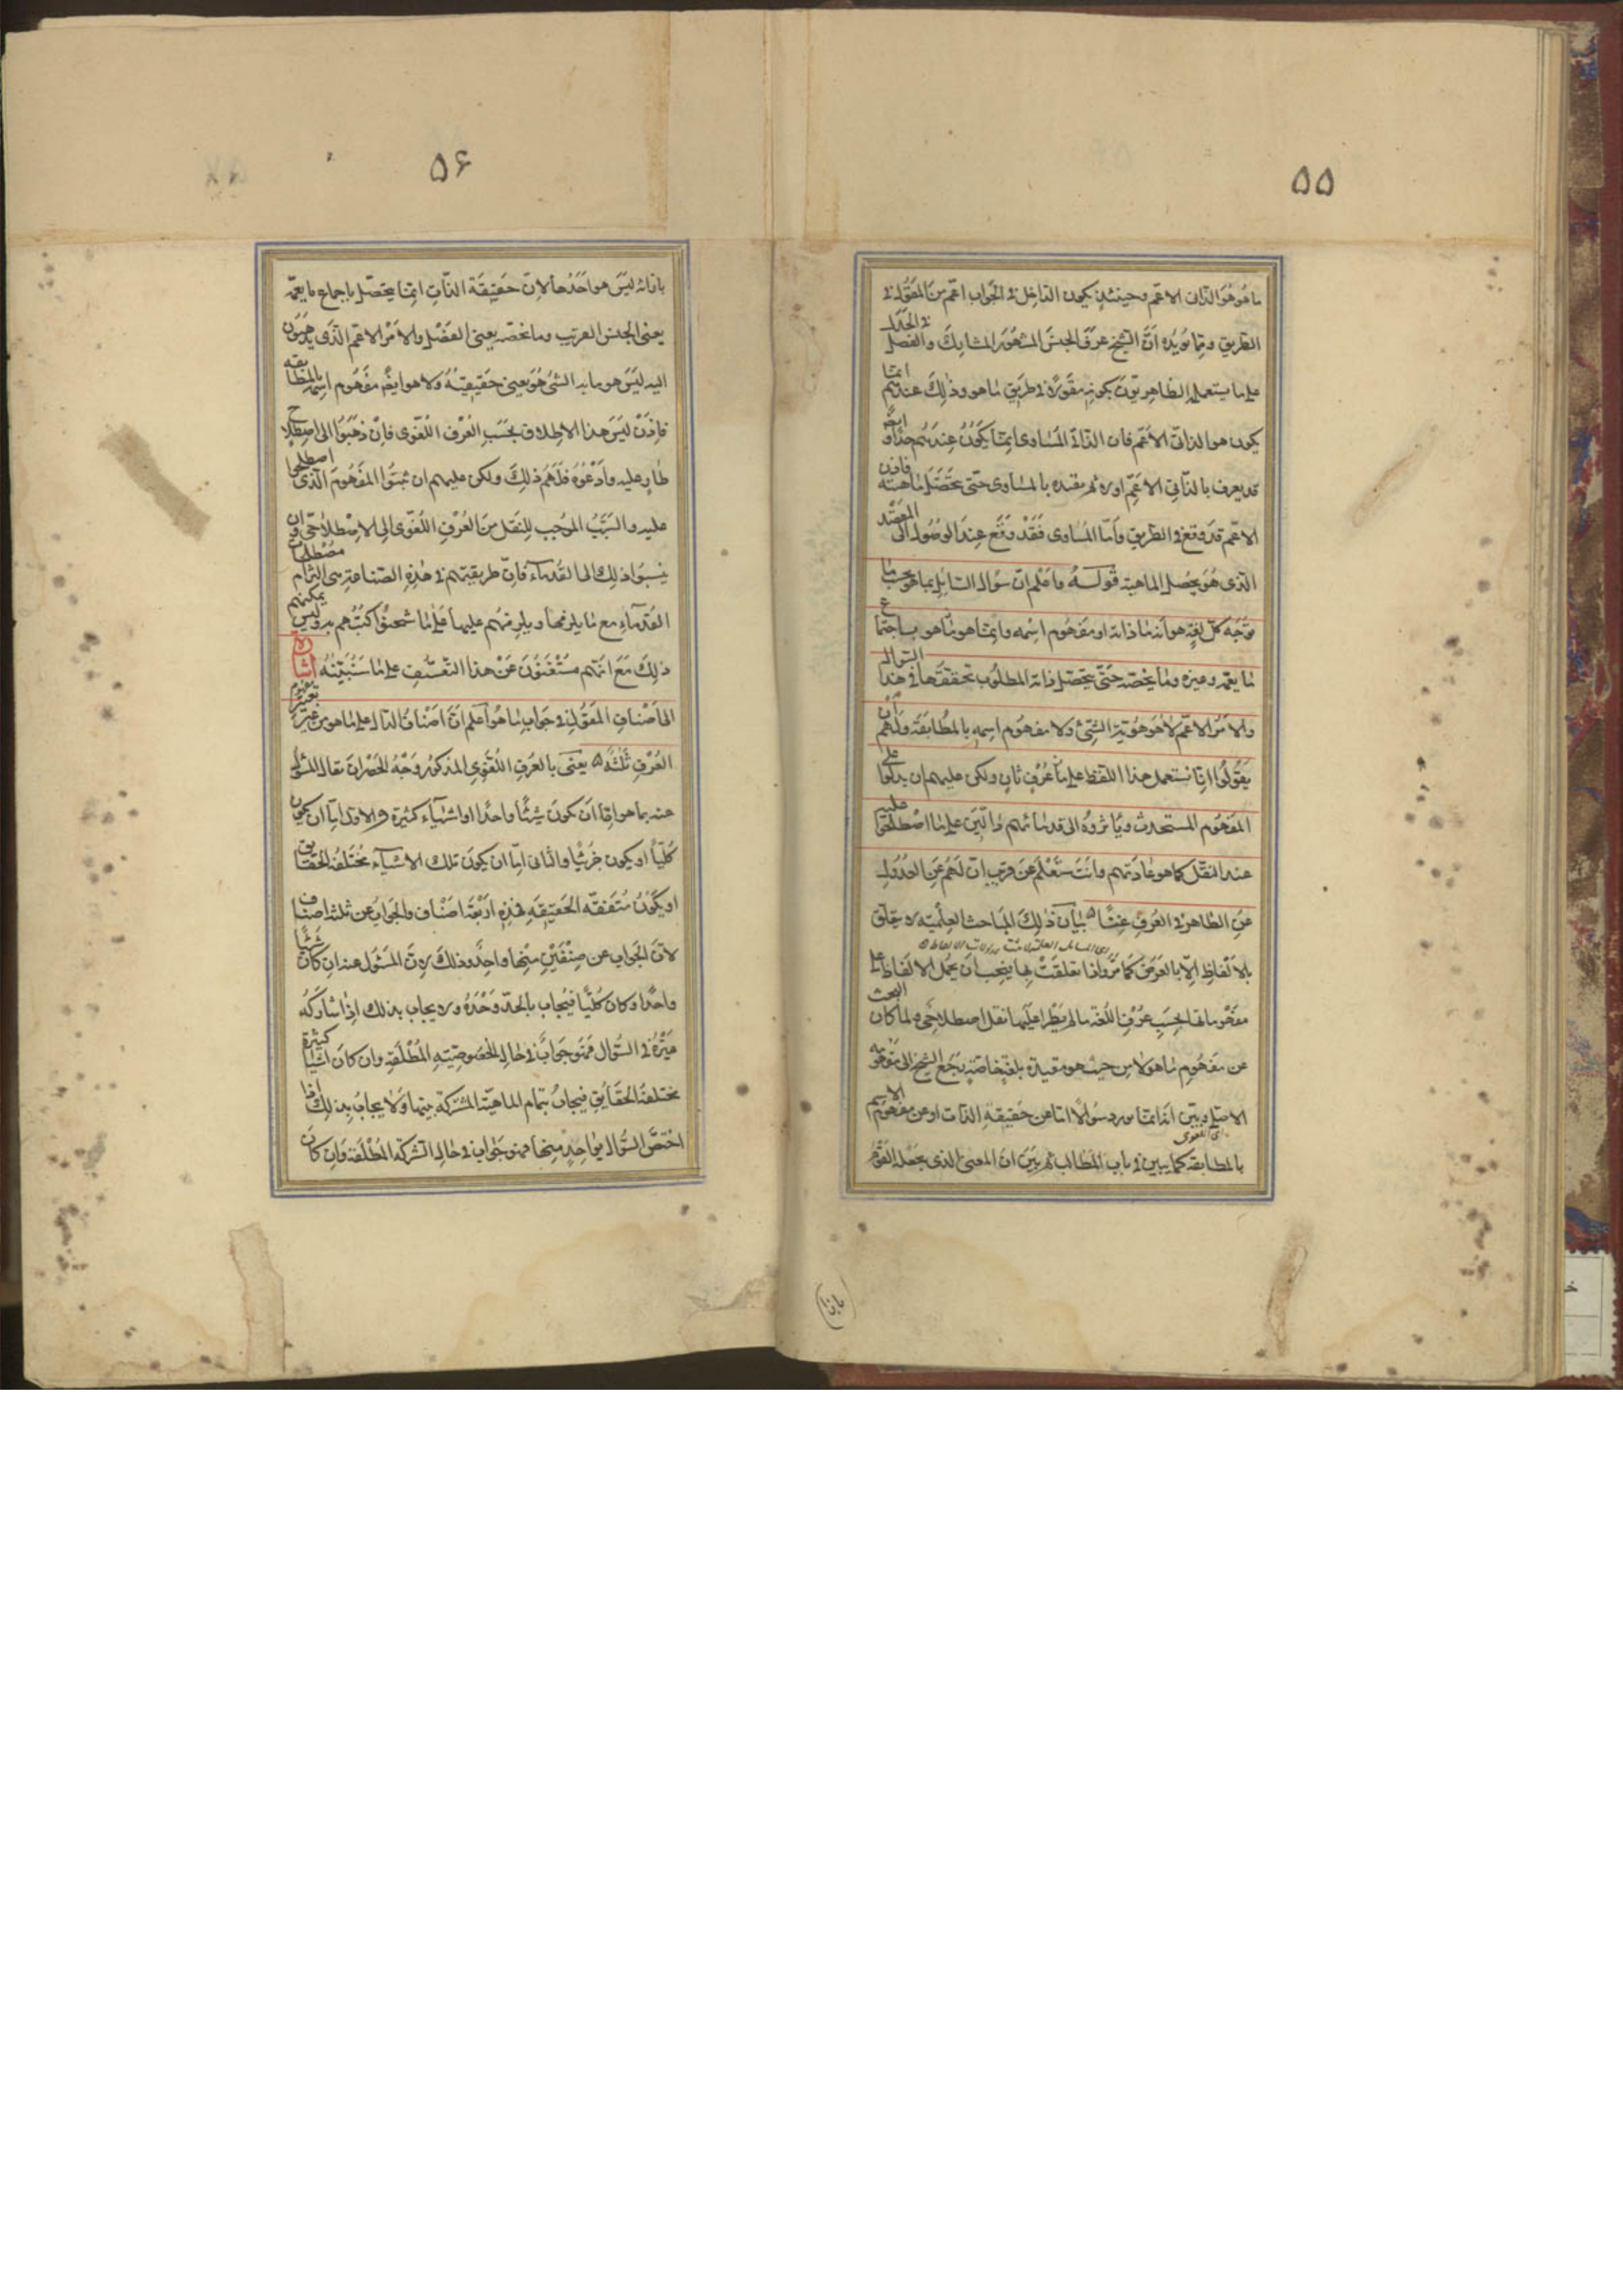 ٥٥
ما هو هو الذاتي الاعم وحينئذ يكون الداخل في الجواب اعم من المقول في
الطريق ومما يؤيده ان الشيخ عرف الجنس المشهور المشابك والفصل في الجدل
على ما يستعمله الظاهريون بكونه مقولا في طريق ما هو وذلك عندهم انما
يكون هو الذاتي الاعم فان الذاتي المساوى انما يكون عندهم حدا و ايضا
قد يعرف بالذاتي الاعم اولا ثم يقيده بالمساوى حتى تحصل ماهيته فاذن
الاعم قد وقع في الطريق واما المساوى فقد وقع عند الوصول الى المقصد
الذى هو تحصل الماهية قوله واعلم ان سؤال السائل بما هو بحسب ما
توجبه كل لغة هو انه ما ذاته او مفهوم اسمه وانما هو ما هو باجتماع
ما يعمه وغيره وما يخصه حتى يتحصل ذاته المطلوب تحققها في هذا السؤال
والامر الاعم لا هو هوية الشئ ولا مفهوم اسمه بالمطابقة ولهم ان
يقولوا انا نستعمل هذا اللفظ على عرف ثان ولكن عليهم ان يدلوا على
المفهوم المستحدث ويأثروه الى قدمائهم دالين على ما اصطلحوا عليه
عند النقل كما هو عادتهم وانت ستعلم عن قريب ان لهم عن العدول
عن الظاهر في العرف غنى بيان ذلك المباحث العلمية لا تتعلق
بالالفاظ الا بالعرض كما مر واذا تعلقت بها فيجب ان يحمل الالفاظ على
مفهوماتها بحسب عرف اللغة ما لم يطرا عليها نقل اصطلاحى ولما كان البحث
عن مفهوم ما هو لا من حيث هو مقيدة بلغة خاصة رجع الشيخ الى مفهومه
الاصلى وبين انه انما يورد سؤالا اما عن حقيقة الذات او عن مفهوم الاسم
بالمطابقة كما يبين في باب المطالب ثم بين ان المعنى الذى يجعله القوم
٥۶
بازائه ليس هو احدهما لان حقيقة الذات انما يتحصل باجماع ما يعمه
يعنى الجنس القريب وما يخصه يعنى الفصل والامر الاعم الذى يذهبون
اليه ليس هو ما به الشئ هو يعنى حقيقته ولا هو ايضا مفهوم اسمه بالمطابقة
فاذن ليس هذا الاطلاق بحسب العرف اللغوى فان ذهبوا الى اصطلاح
طار عليه وادعوه فلهم ذلك ولكن عليهم ان يثبتوا المفهوم الذى اصطلحوا
عليه والسبب الموجب للنقل من العرف اللغوى الى الاصطلاحى وان
ينسبوا ذلك الى القدماء فان طريقتهم في هذه الصناعة هى التزام مصطلحات
القدماء مع ما يلزمها ويلزمهم عليها على ما شحنوا كتبهم به وليس يمكنهم
ذلك مع انهم مستغنون عن هذا التعسف على ما سنبينه اشارة
الى اصناف المقول في جواب ما هو اعلم ان اصناف الدال على ما هو من غير تغيير
العرف ثلثة يعنى بالعرف اللغوى المذكور وجه الحصر ان يقال المسئول
عنه بما هو اما ان يكون شيئا واحدا او اشياء كثيرة والاول اما ان يكون
كليا او يكون جزئيا والثانى اما ان يكون تلك الاشياء مختلفة الحقايق
او يكون متفقة الحقيقة فهذه اربعة اصناف والجواب عن ثلثة اصناف
لان الجواب عن صنفين منها واحد وذلك لان المسئول عنه ان كان شيئا
واحدا وكان كليا فيجاب بالحد وحده ولا يجاب بذلك اذا شاركه
غيره في السؤال فهو جواب في حال الخصوصية المطلقة وان كان اشياء كثيرة
مختلفة الحقايق فيجاب بتمام الماهية المشتركة بينها ولا يجاب بذلك اذا
اختص السؤال بواحد منها فهو جواب في حال الشركة المطلقة وان كان